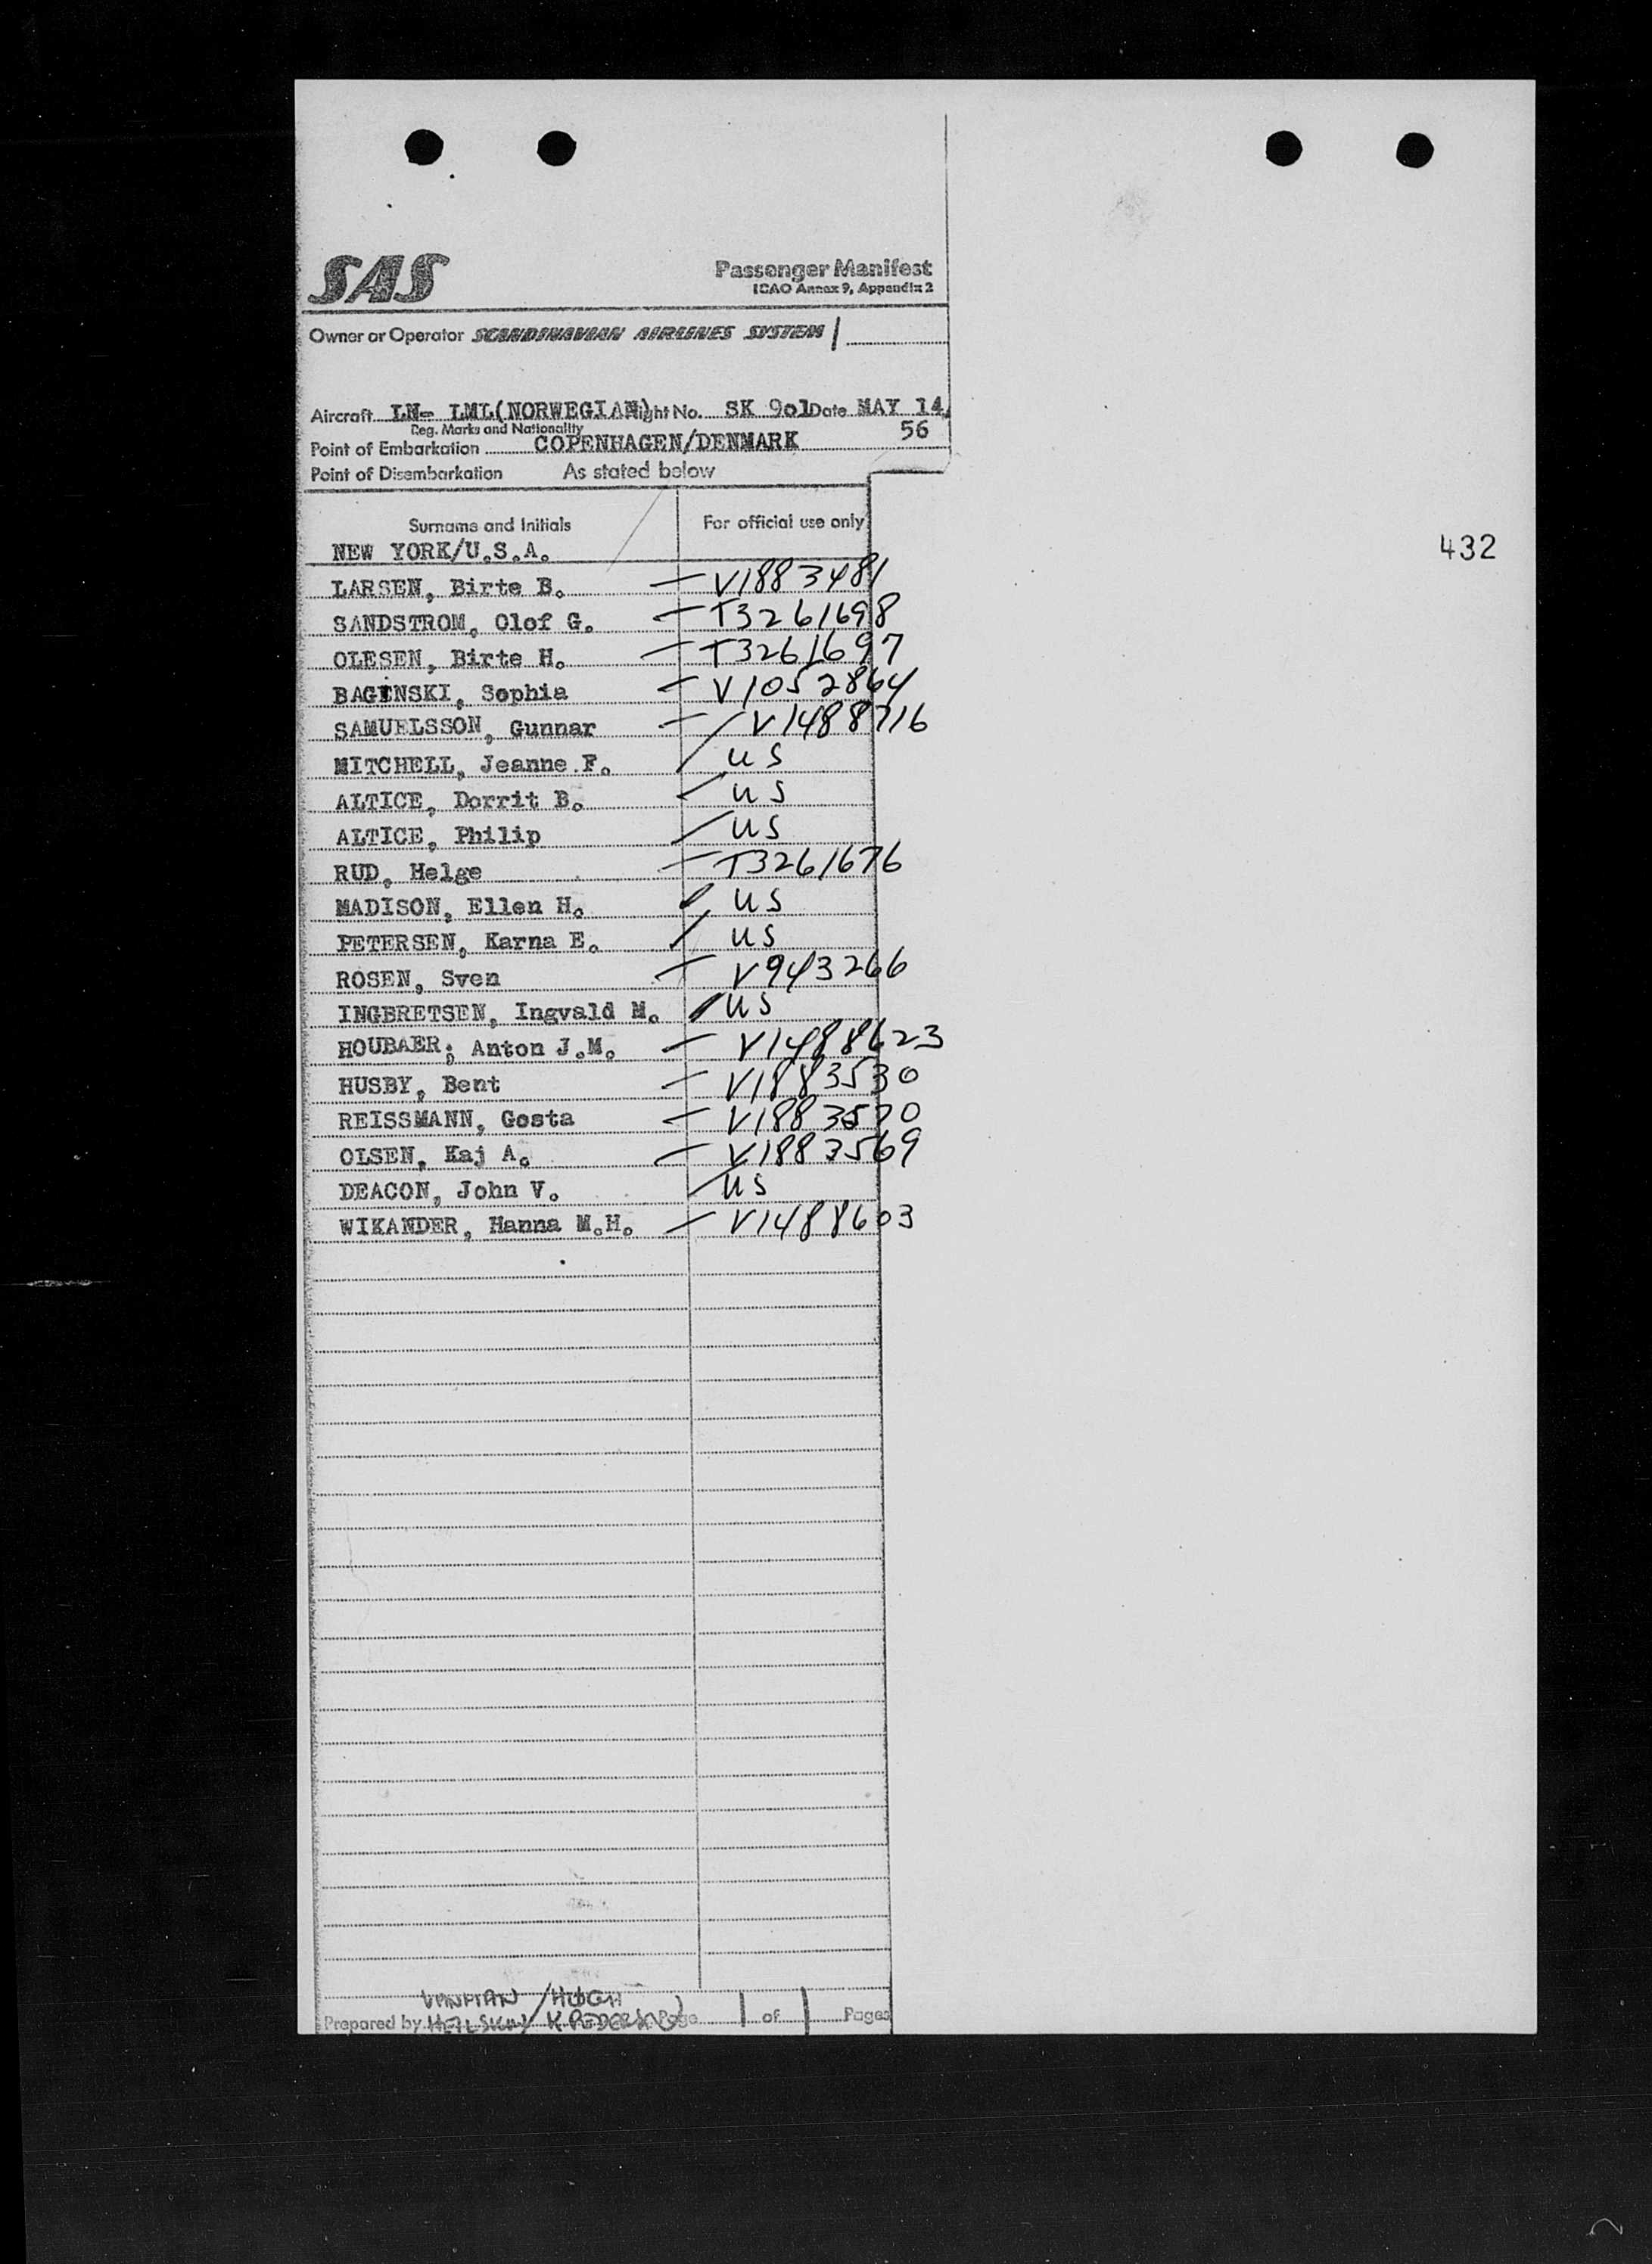 SAS
Passenger Manifest
ICAO Annex 9, Appendix 2
Owner or Operator SCANDINAVIAN AIRLINES SYSTEM
Aircraft LN- LML(NORWEGIAN) Flight No. SK 9o1 Date MAY 14,
Reg. Marks and Nationality 56
Point of Embarkation COPENHAGEN/DENMARK
Point of Disembarkation As stated below
Surname and Initials For official use only
NEW YORK/U.S.A.
432
LARSEN, Birte B. — V1883481
SANDSTROM, Olof G. — T3261698
OLESEN, Birte H. — T3261697
BAGINSKI, Sophia — V1052864
SAMUELSSON, Gunnar — V1488716
MITCHELL, Jeanne F. / US
ALTICE, Dorrit B. / US
ALTICE, Philip / US
RUD, Helge — T3261676
MADISON, Ellen H. / US
PETERSEN, Karna E. / US
ROSEN, Sven — V943266
INGBRETSEN, Ingvald M. / US
HOUBAER; Anton J.M. — V1488623
HUSBY, Bent — V1883530
REISSMANN, Gosta — V1883570
OLSEN, Kaj A. — V1883569
DEACON, John V. / US
WIKANDER, Hanna M.H. — V1488603
Prepared by Page 1 of 1 Pages